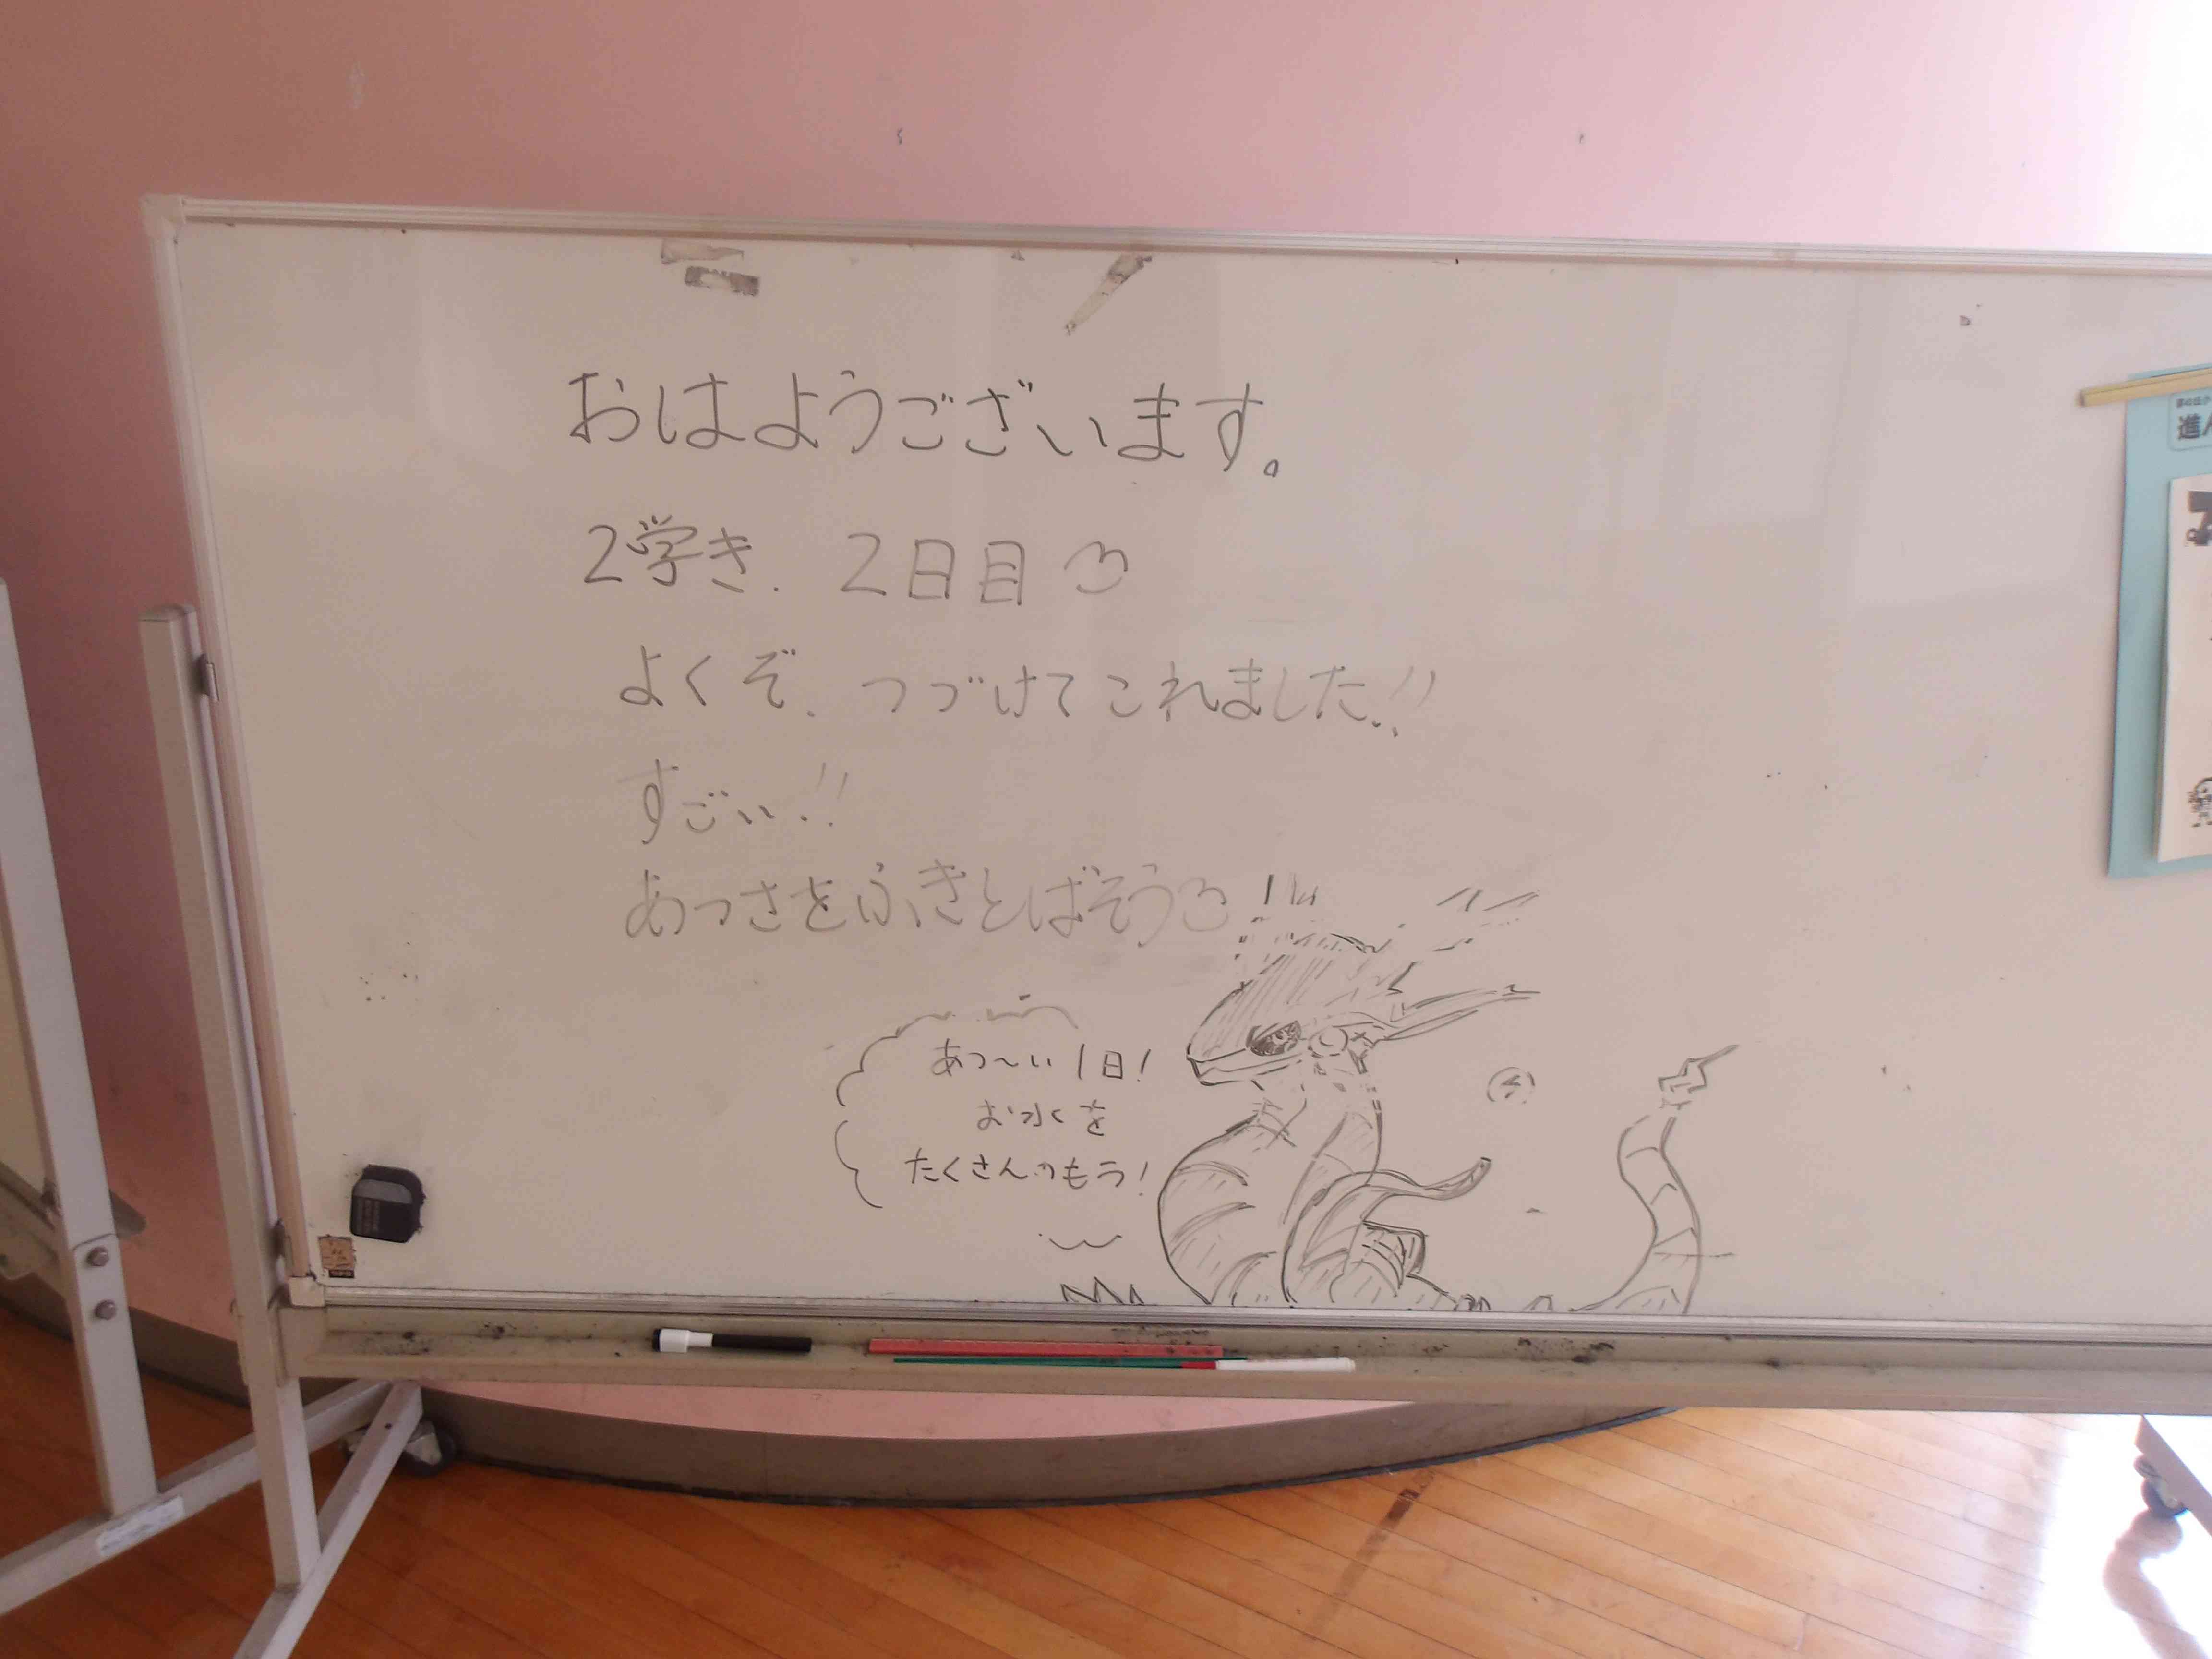 おはようございます。
2学き. 2日目
よくぞ、つづけてこれました!!
すごい!!
あつさをふきとばそう
あつ～い1日!
お水を
たくさんのもう!
進